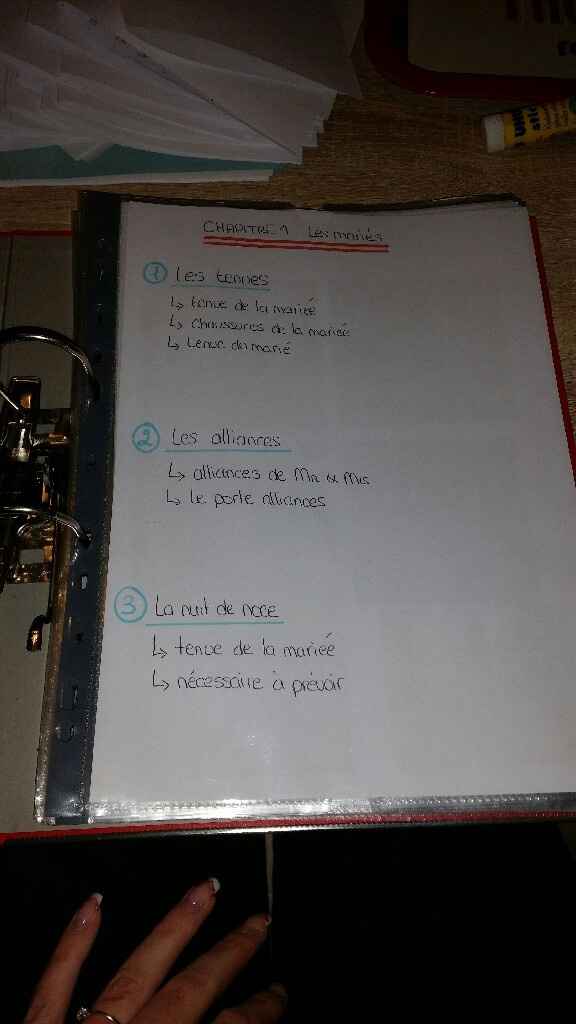 CHAPITRE 1 Les mariés
1 Les tenues
↳ tenue de la mariée
↳ chaussures de la mariée
↳ tenue du marié
2 Les alliances
↳ alliances de Mr & Mme
↳ le porte alliances
3 La nuit de noce
↳ tenue de la mariée
↳ nécessaire à prévoir
UHU
stic